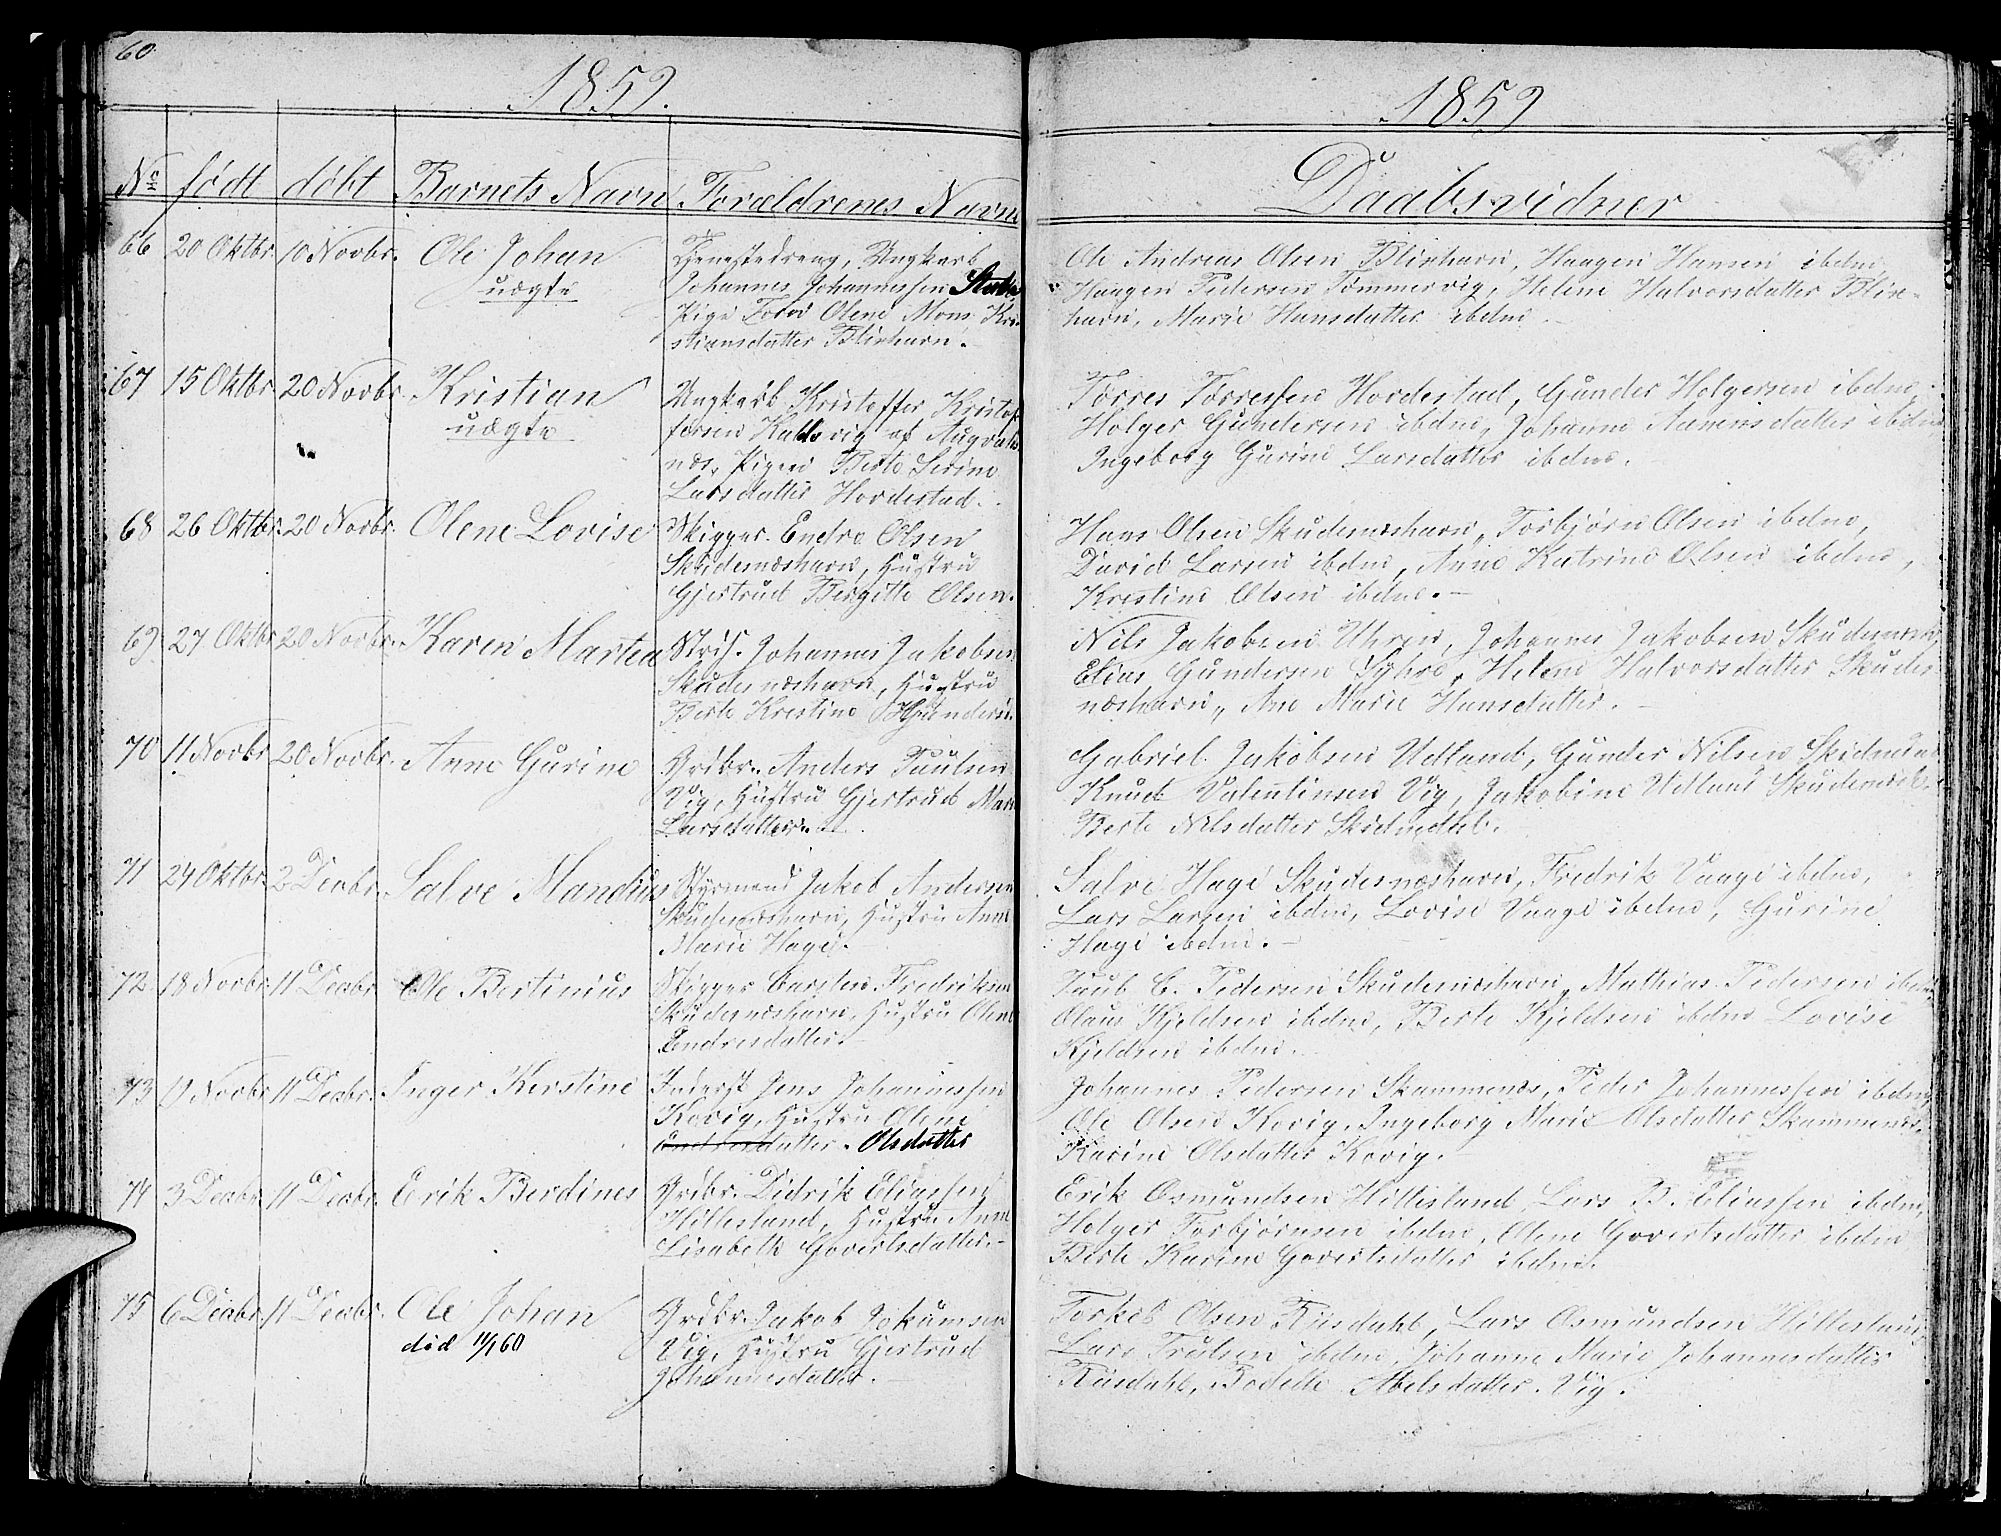 60.
1859.
No født døbt Barnets Navn Forældrenes Navne
66 20 Oktbr. 10 Novbr. Ole Johan
uægte
Tjenestedreng, Ungkarl
Johannes Johannessen
Pige Olene Mons Kri-
stiansdatter Blixhavn.
67 15 Oktbr. 20 Novbr. Kristian
uægte
Ungkarl Kristoffer Kristof-
fersen af Augvalds-
næs, Pigen Berte Serine
Larsdatter Hordestad.
68 26 Oktbr. 20 Novbr. Olene Lovise
Skipper Endre Olsen
Skudesnæshavn, Hustru
Gjertrud Birgitte Olsen.
69 27 Oktbr. 20 Novbr. Karen Martea
Strs. Johannes Jakobsen
Skudesnæshavn, Hustru
Berte Kristine
70 11 Novbr. 20 Novbr. Anne Gurine
Grdbr. Anders Paulsen
Vig, Hustru Gjertrud
Larsdatter.
71 24 Oktbr. 2 Decbr. Salve Mandius
Styrmand Jakob Andersen
Skudesnæshavn, Hustru Anne
Marie Hage.
72 18 Novbr. 11 Decbr. Ole Bertinius
Skipper Carsten Fredriksen
Skudesnæshavn, Hustru Olene
Endresdatter.
73 Novbr. 11 Decbr. Inger Kirstine
Inderst Jens Johannessen
Kovig, Hustru Olene
Olsdatter
74 3 Decbr. 11 Decbr. Erik Berdines
Grdbr. Didrik Eliassen
Hillesland, Hustru Anne
Lisabeth Govertsdatter.
75 6 Decbr. 11 Decbr. Ole Johan
død 11/1 60
Grdbr. Jakob Jokumsen
Vig, Hustru Gjertrud
Johannesdatter.
1859
Daabsvidner
Ole Andreas Olsen Blixhavn, Haagen Hansen ibdm,
Haagen Pedersen Tømmervig, Helene Halvorsdatter Blix-
havn, Marie Hansdatter ibdm.
Tørres Tørressen Hordestad, Gunder Holgersen ibdm,
Holger Gundersen ibdm, Johanne ibdm
Ingeborg Gurine Larsdatter ibdm.
Hans Olsen Skudesnæshavn, Torbjørn Olsen ibdm,
David Larsen ibdm, Anne Katrine Olsen ibdm,
Kristine Olsen ibdm.
Nils Jakobsen Uhren, Johannes Jakobsen
Elias Gundersen Syhre, Helene Halvorsdatter Skudes-
næshavn, Ane Marie Hansdatter.
Gabriel Jakobsen Udland, Gunder Nilsen
Knud Valentinsen Vig, Jakobine Udland
Berte Nilsdatter
Salve Hage Skudesnæshavn, Fredrik Vaage ibdm,
Lars Larsen ibdm, Lovise Vaage ibdm, Gurine
Hage ibdm.
E. Pedersen Skudesnæshavn, Mathias Pedersen ibdm,
Olaus Kjeldsen ibdm, Berte Kjeldsen ibdm Lovise
Kjeldsen ibdm.
Johannes Pedersen Skammenæs, Peder Johannessen ibdm,
Ole Olsen Kovig, Ingeborg Marie Olsdatter Skammenæs,
Karine Olsdatter Kovig.
Erik Osmundsen Hillesland, Lars B. Eliassen ibdm,
Holger Torbjørnsen ibdm, Olene Govertsdatter ibdm
Berte Karine Govertsdatter ibdm.
Torkel Olsen Risdahl, Lars Osmundsen Hillesland,
Lars Trulsen ibdm, Johanne Marie Johannesdatter
Risdahl, Bodelle Abelsdatter Vig.